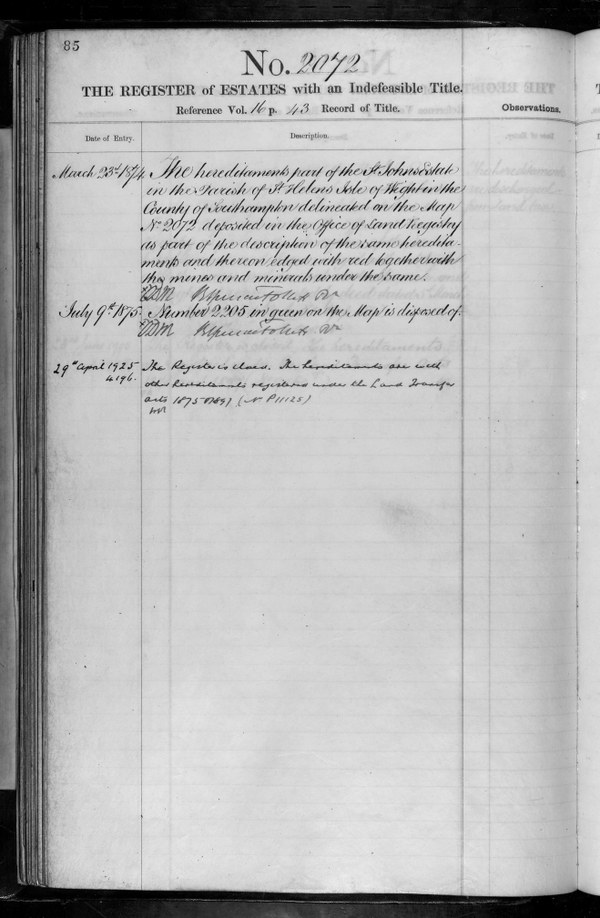 85
No. 2072
THE REGISTER of ESTATES with an Indefeasible Title.
Reference Vol. 16 p. 43 Record of Title.
Observations.
Date of Entry.
Description.
March 23d 1874. The hereditaments part of the St Johns Estate
in the Parish of St Helens Isle of Wight in the
County of Southampton delineated on the Map
No 2072 deposited in the Office of Land Registry
as part of the description of the same heredita-
ments and thereon edged with red together with
the mines and minerals under the same.
Br Spencer Follett Rr
July 9th 1875. Number 2205 in green on the Map is disposed of.
Br Spencer Follett Rr
29th April 1925 The Register is closed. The hereditaments are with
4196. other hereditaments registered under the Land Transfer
acts 1875 & 1897 (No P11125)